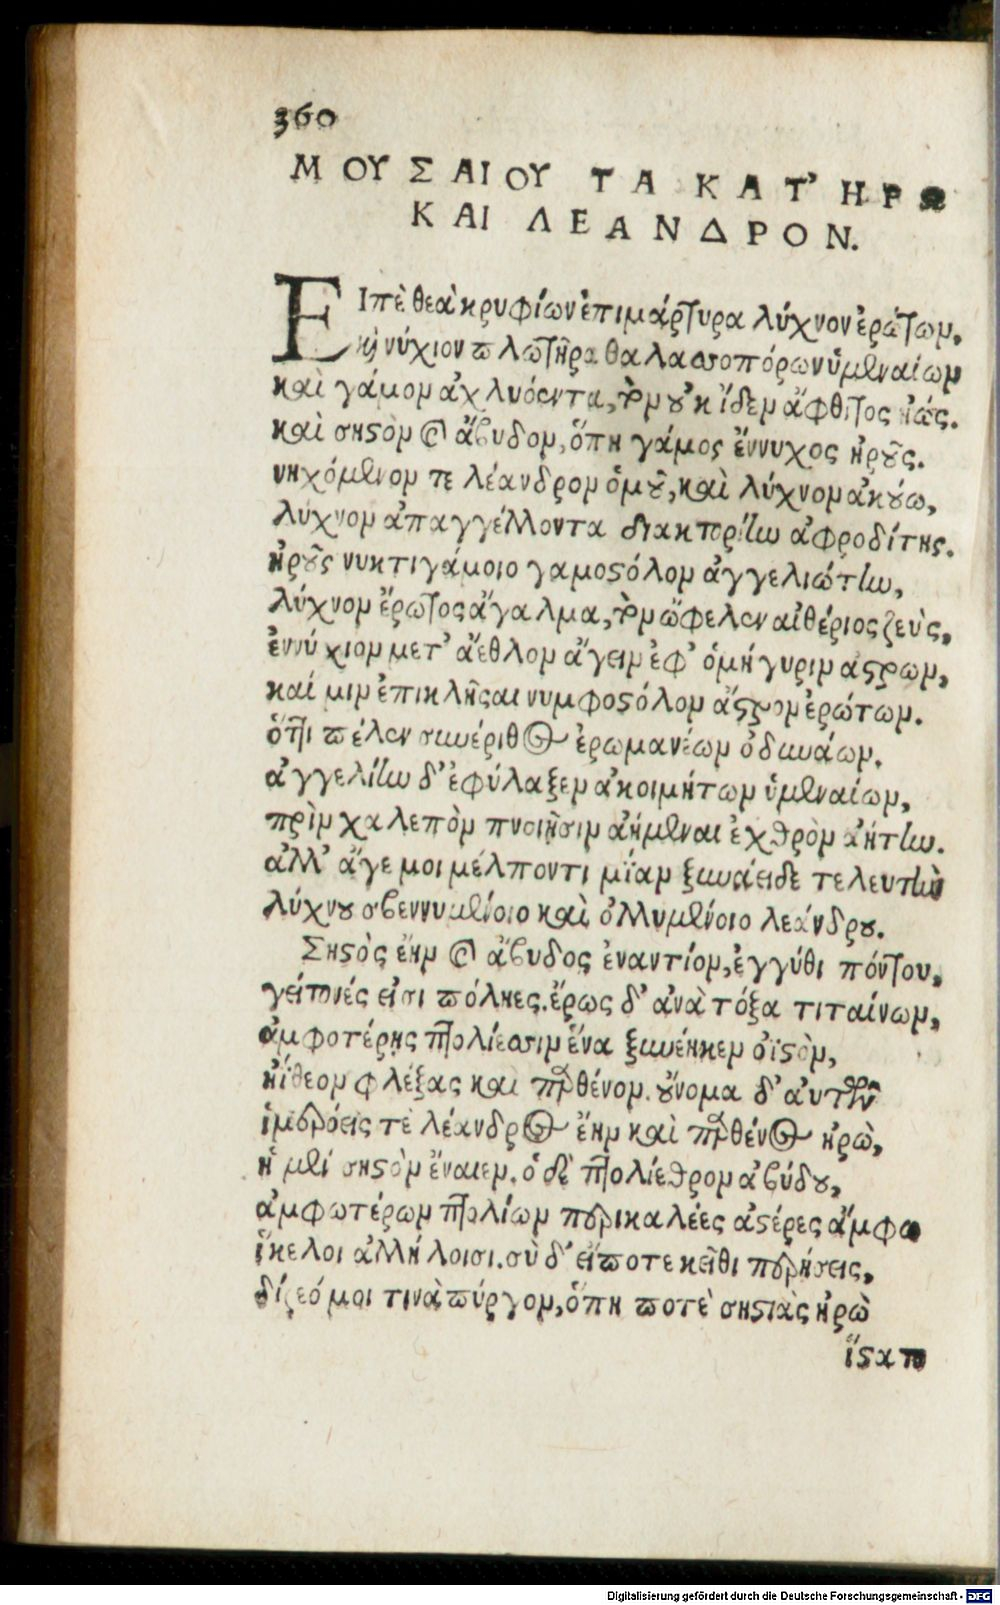 360
ΜΟΥΣΑΙΟΥ ΤΑ ΚΑΤ' ΗΡΩ
ΚΑΙ ΛΕΑΝΔΡΟΝ.
ΕΙπὲ θεὰ κρυφίων ἐπιμάρτυρα λύχνον ἐρώτων,
καὶ νύχιον πλωτῆρα θαλασσοπόρων ὑμεναίων
καὶ γάμον ἀχλυόεντα, τὸν οὐκ ἴδεν ἄφθιτος ἠώς.
καὶ σηστὸν καὶ ἄβυδον, ὅπη γάμος ἔννυχος ἡροῦς.
νηχόμενον τε λέανδρον ὁμοῦ, καὶ λύχνον ἀκούω,
λύχνον ἀπαγγέλλοντα διακτορίην ἀφροδίτης.
ἡροῦς νυκτιγάμοιο γαμοστόλον ἀγγελιώτην,
λύχνον ἔρωτος ἄγαλμα, τὸν ὤφελεν αἰθέριος ζεὺς,
ἐννύχιον μετ' ἄεθλον ἄγειν ἐφ' ὁμήγυριν ἄστρων,
καί μιν ἐπικλῆσαι νυμφοστόλον ἄστρον ἐρώτων.
ὅττι πέλεν συνέριθος ἐρωμανέων ὀδυνάων.
ἀγγελίην δ' ἐφύλαξεν ἀκοιμήτων ὑμεναίων,
πρὶν χαλεπὸν πνοιῇσιν ἀήμεναι ἐχθρὸν ἀήτην.
ἀλλ' ἄγε μοι μέλποντι μίαν ξυνάειδε τελευτὴν
λύχνου σβεννυμένοιο καὶ ὀλλυμένοιο λεάνδρου.
Σηστὸς ἔην καὶ ἄβυδος ἐναντίον, ἐγγύθι πόντου,
γείτονές εἰσι πόληες. ἔρως δ' ἀνὰ τόξα τιταίνων,
ἀμφοτέρῃς πτολίεσσιν ἕνα ξυνέηκεν ὀϊστὸν,
ἠΐθεον φλέξας καὶ παρθένον. οὔνομα δ' αὐτῶν
ἱμερόεις τε λέανδρος ἔην καὶ παρθένος ἡρὼ,
ἡ μὲν σηστὸν ἔναιεν. ὁ δὲ πτολίεθρον ἀβύδου,
ἀμφωτέρων πτολίων περικαλέες ἀστέρες ἄμφω
ἴκελοι ἀλλήλοισι. σὺ δ' εἴποτε κεῖθι περήσεις,
δίζεό μοι τινὰ πύργον, ὅπη ποτὲ σηστιὰς ἡρὼ
ἵστατο